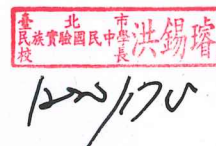 臺北市
民族實驗國民中學
校長洪錫璿